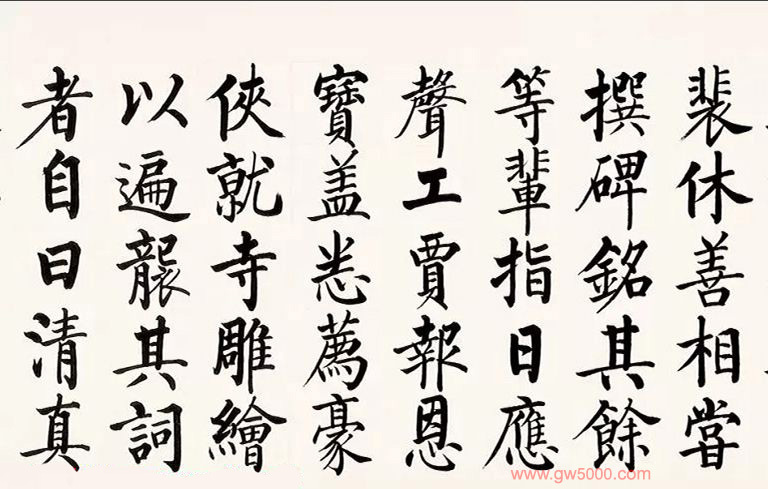 裴休善相嘗
撰碑銘其餘
等輩指日應
聲工賈報恩
寶盖悉薦豪
俠就寺雕繪
以遍襲其詞
者自曰清真
www.gw5000.com